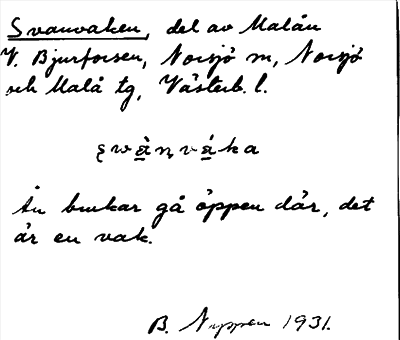 Svanvaken, del av Malån
V. Bjurforsen, Norsjö m, Norsjö
och Malå tg, Västerb. l.
Ån brukar gå öppen där, det
är en vak.
B. Nyppen 1931.